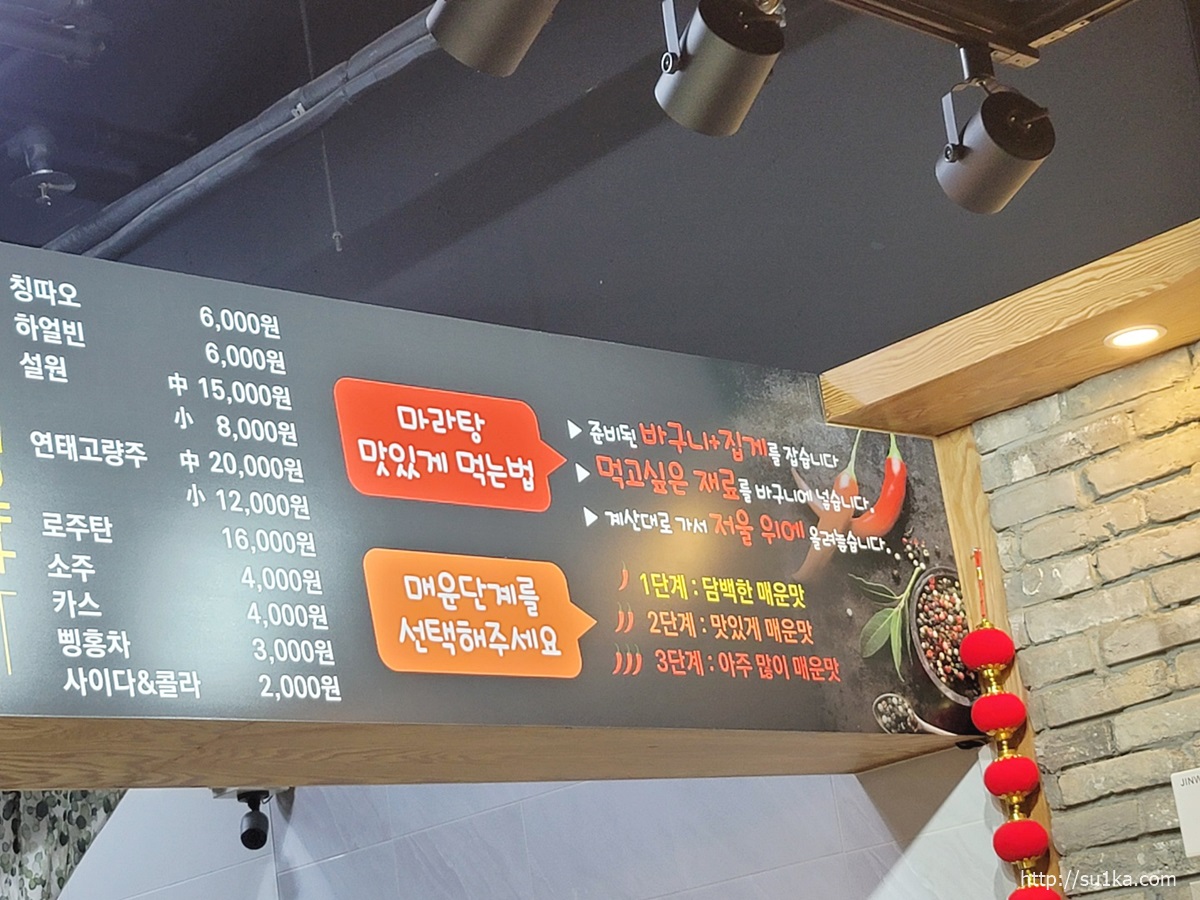 칭따오 6,000원
하얼빈 6,000원
설원 中 15,000원
小 8,000원
연태고량주 中 20,000원
小 12,000원
로주탄 16,000원
소주 4,000원
카스 4,000원
삥홍차 3,000원
사이다&콜라 2,000원
마라탕
맛있게 먹는법
▶ 준비된 바구니+집게를 잡습니다
▶ 먹고싶은 재료를 바구니에 넣습니다.
▶ 계산대로 가서 저울 위에 올려놓습니다..
매운단계를
선택해주세요
1단계 : 담백한 매운맛
2단계 : 맛있게 매운맛
3단계 : 아주 많이 매운맛
http://su1ka.com